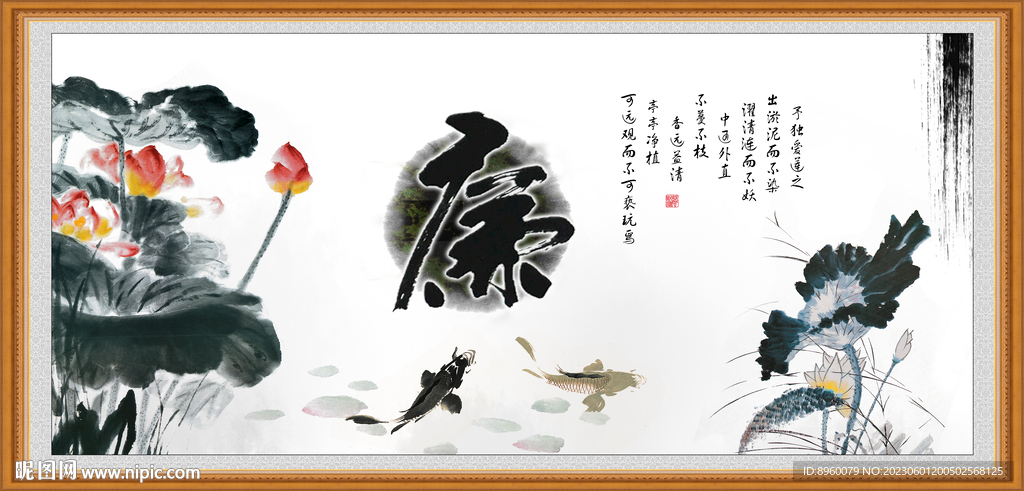 廉
予独爱莲之
出淤泥而不染
濯清涟而不妖
中通外直
不蔓不枝
香远益清
亭亭净植
可远观而不可亵玩焉
昵图网 www.nipic.com
ID:8960079 NO:20230601200502568125